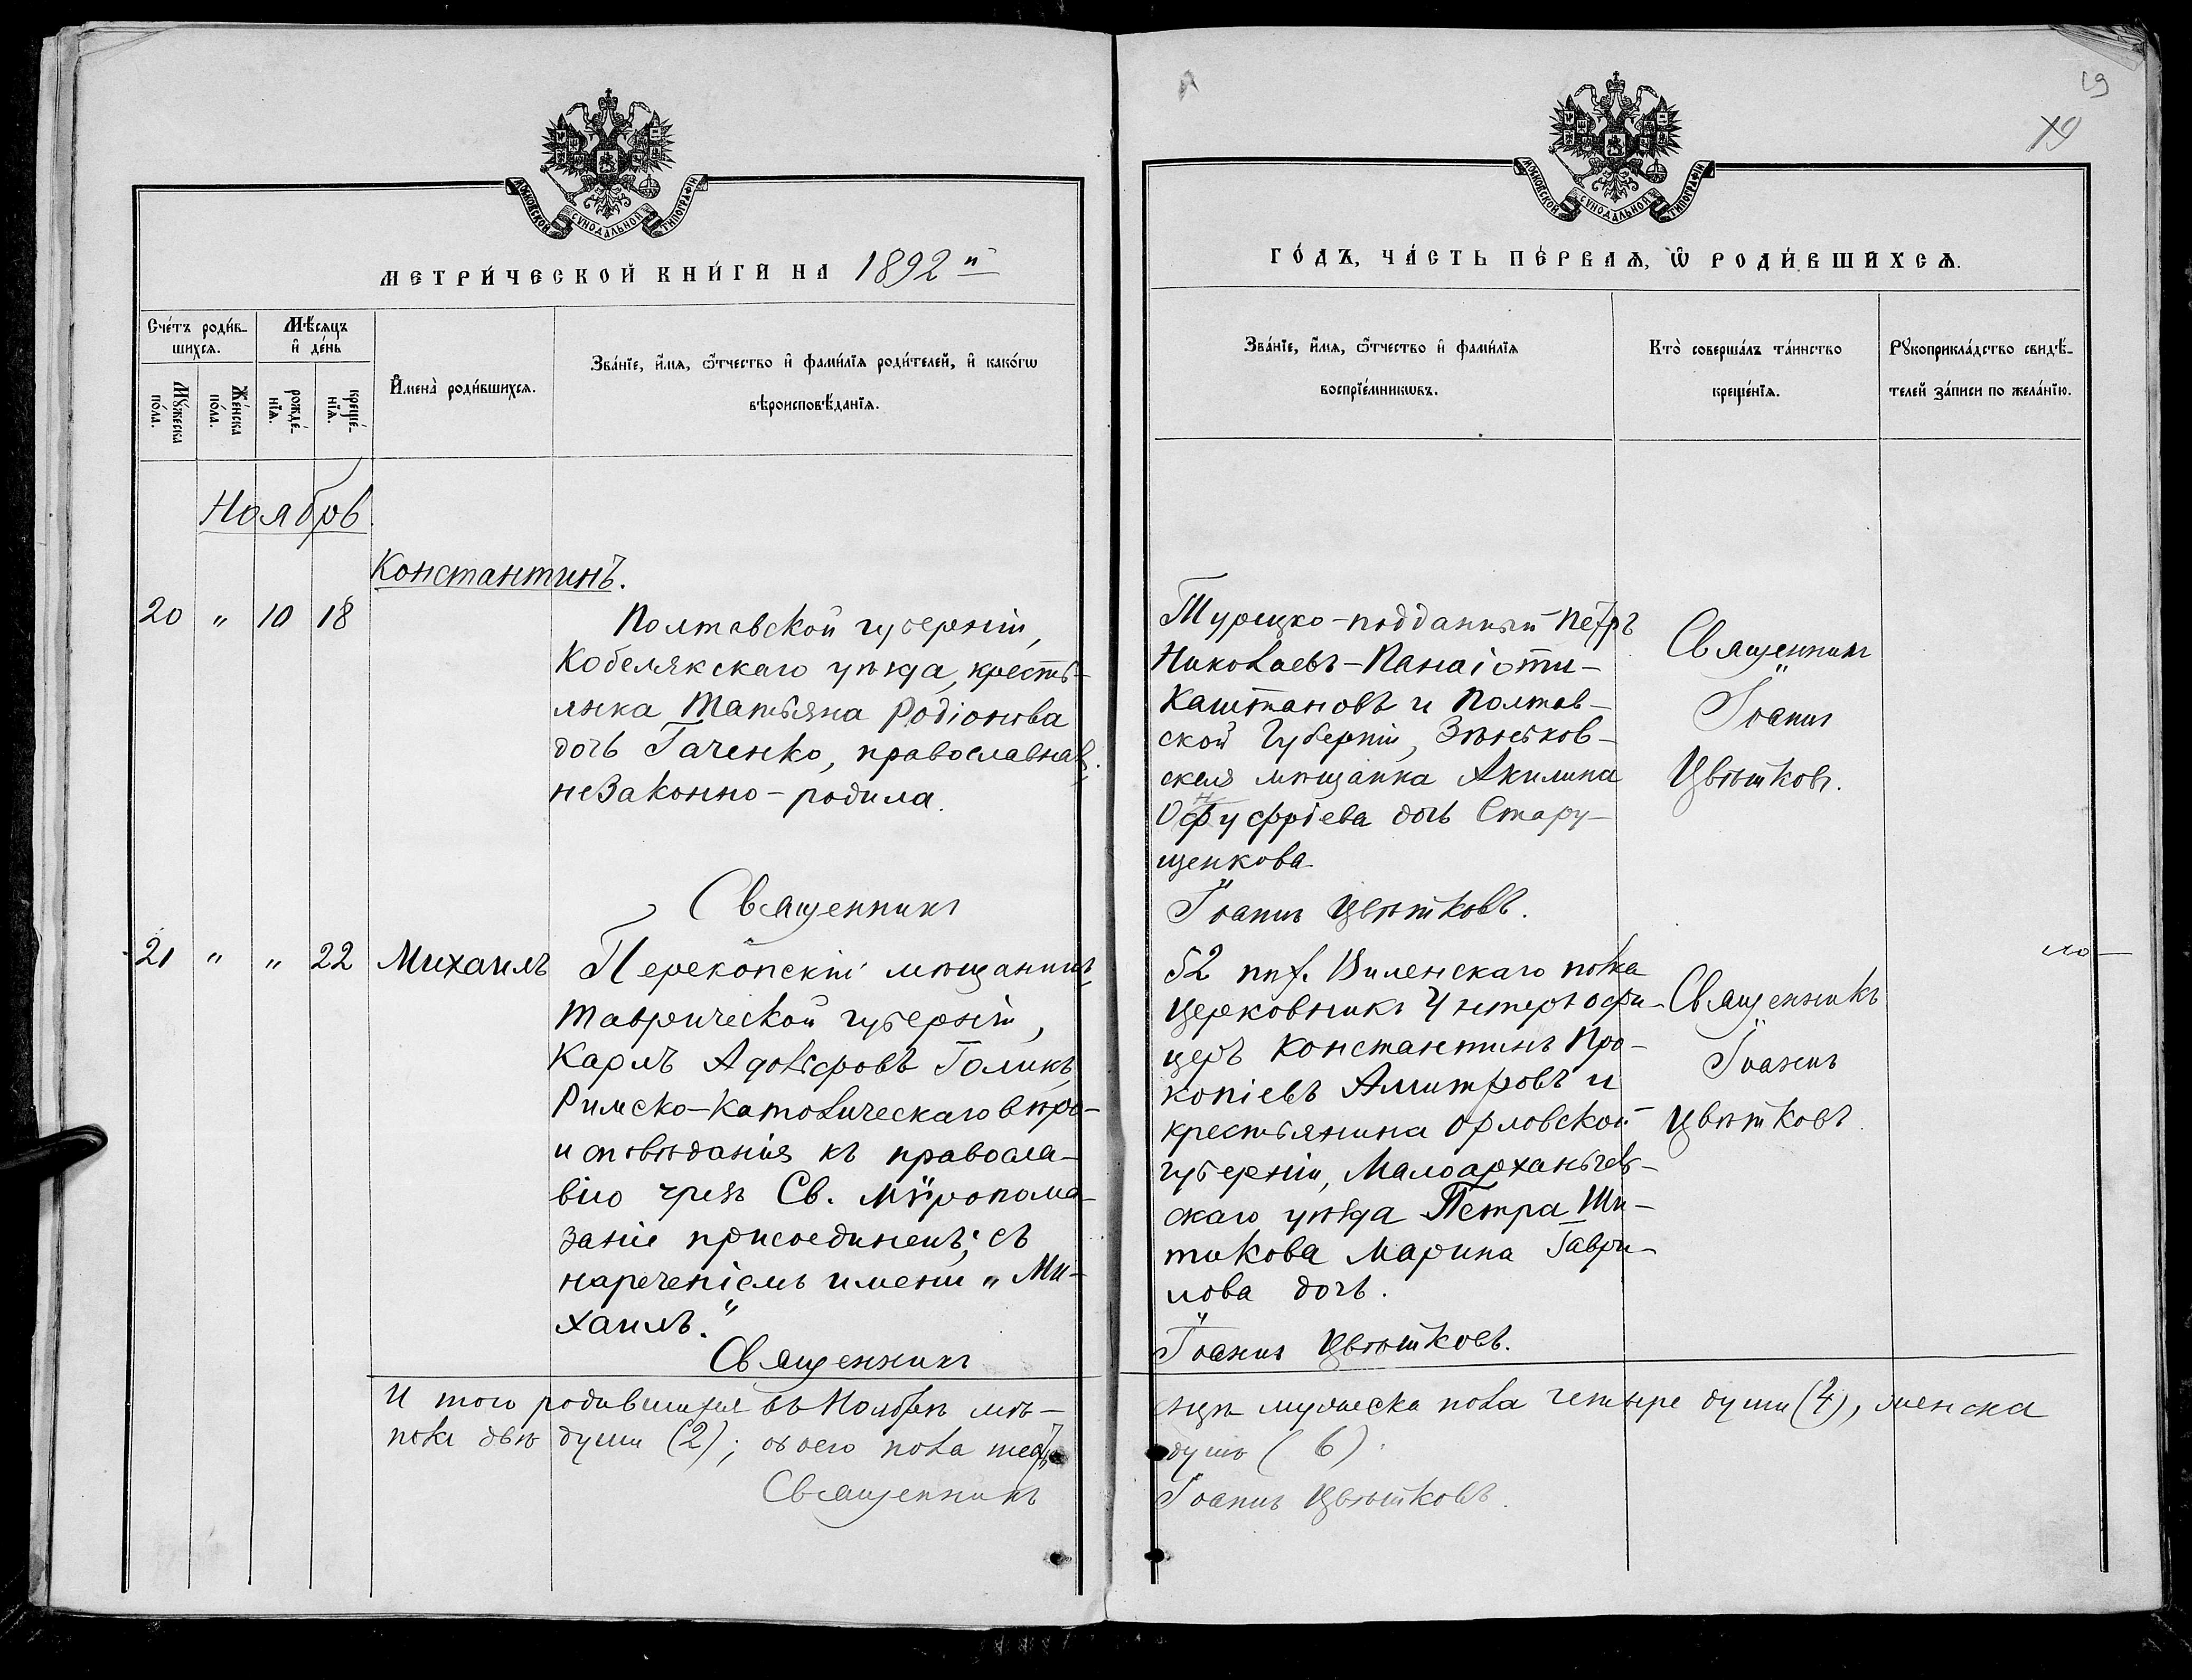 19
19
МОСКОВСКОЙ СѴНОДАЛЬНОЙ ТИПОГРАФІИ
МЕТРИ́ЧЕСКОЙ КНИ́ГИ НА 1892й
Сче́тъ роди́в-
шихсѧ.
Мѣ́сѧцъ
и҆ де́нь
Мꙋ́жеска
по́ла.
Же́нска
по́ла.
рожде́-
нїѧ.
креще́-
нїѧ.
И҆мена̀ роди́вшихсѧ.
Зва́нїе, и҆́мѧ, ѻ҆́тчество и҆ фами́лїѧ роди́телей, и҆ како́гѡ
вѣроисповѣ́данїѧ.
Ноябрь
Константинъ.
20 " 10 18
Полтавской губерніи,
Кобелякскаго уѣзда, кресть-
янка Татьяна Родіонова
дочь Гаченко, православная,
незаконно-родила.
Священникъ
21 " " 22 Михаилъ
Перекопскій мѣщанинъ
Таврической губерніи,
Карлъ Адольфовъ Голикъ,
Римско-Католическаго вѣро-
исповѣданія къ правосла-
вію чрезъ Св. Мѵропома-
заніе присоединенъ; съ
нареченіемъ имени „Ми-
хаилъ."
Священникъ
И того родившихся въ Ноябрѣ мѣ-
пола двѣ души (2); обоего пола шесть
Священникъ
МОСКОВСКОЙ СѴНОДАЛЬНОЙ ТИПОГРАФІИ
ГО́ДЪ, ЧА́СТЬ ПЕ́РВАѦ, Ѡ҆ РОДИ́ВШИХСѦ.
Зва́нїе, и҆́мѧ, ѻ҆́тчество и҆ фами́лїѧ
воспрїе́мникѡвъ.
Кто̀ соверша́лъ та́инство
креще́нїѧ.
Рꙋкоприкла́дство свидѣ́-
телей за́писи по жела́нїю.
Турецко-подданный Петръ
Николаевъ-Панаіоти-
Каштановъ и Полтав-
ской Губерніи, Зѣньков-
ская мѣщанка Акилина
дочь Стару-
щенкова
Іоаннъ Цвѣтковъ.
Священникъ
Іоаннъ
Цвѣтковъ.
52 пѣх. Виленскаго полка
Церковникъ Унтеръ офи-
церъ Константинъ Про-
копіевъ Амитровъ и
крестьянина Орловской
губерніи, Малоархангель-
скаго уѣзда Петра Ши-
тикова Марина Гаври-
лова дочь.
Іоаннъ Цвѣтковъ.
Священникъ
Іоаннъ
Цвѣтковъ.
сяцѣ мужеска пола четыре души (4), женска
душъ (6).
Іоаннъ Цвѣтковъ.